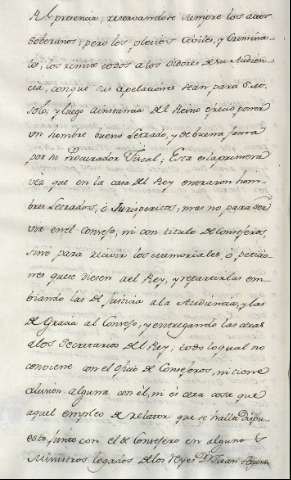 Rl. presencia, reservandose siempre los actos
soberanos; pero los pleitos Civiles, y Crimina-
les, los remite todos a los Oidores de su Audien-
cia, con que sus apelaciones sean para S. A.
solo, y luego a instancia del Reino ofreció poner
un hombre bueno Letrado, y de buena fama
por su Procurador Fiscal; Esta es la primera
vez que en la casa del Rey entraron hom-
bres Letrados, ó Jurisperitos, mas no para ser
vir en el Consejo, ni con titulo de Consejeros,
sino para recivir los memoriales, ó peticio
nes que se diesen al Rey, y repartirlas em-
biando las de Justicia a la Audiencia, y las
de Gracia al Consejo, y entregando las otras
a los Secretarios del Rey, todo lo qual no
conviene con el oficio de Consejeros, ni tiene
alusion alguna con él, ni és otra cosa que
aquel empleo de Relator que se halla
esto junto con el de Consejero en algunos
Ministros legados de los Reyes Dn. Juan